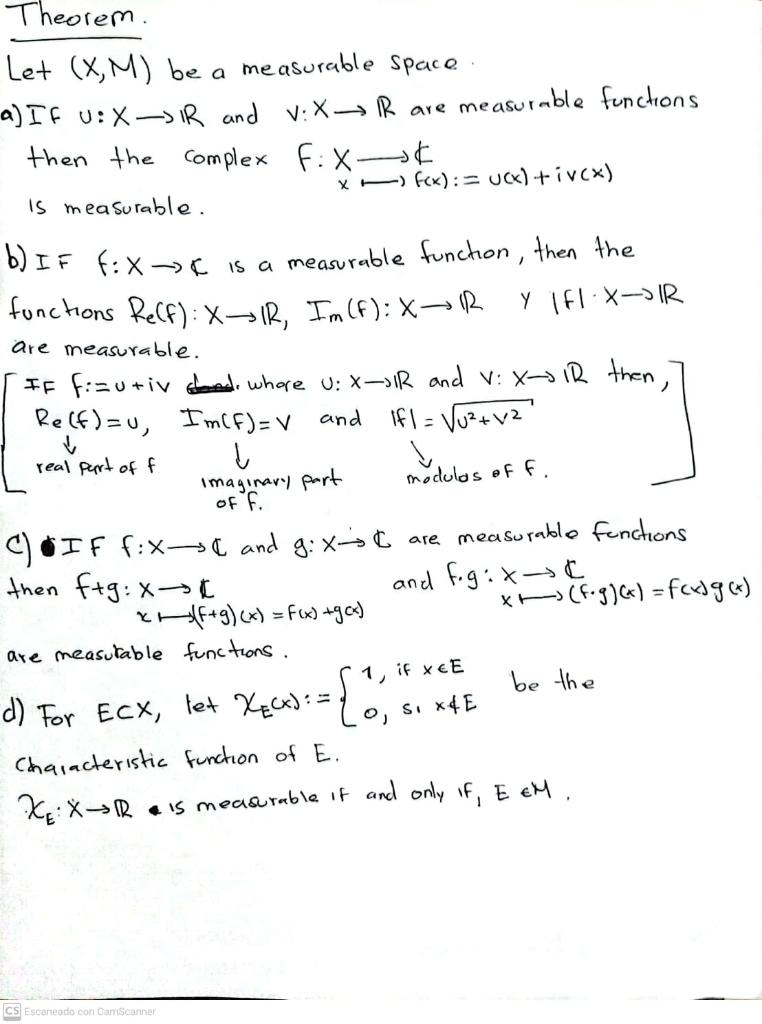 Theorem.
Let (X,M) be a measurable space.
a) If u: X → ℝ and v: X → ℝ are measurable functions
then the complex f: X → ℂ
x ↦ f(x) := u(x) + iv(x)
is measurable.
b) IF f: X → ℂ is a measurable function, then the
functions Re(f): X → ℝ, Im(f): X → ℝ y |f|: X → ℝ
are measurable.
IF f:=u+iv where u: X → ℝ and v: X → ℝ then,
Re(f)=u, Im(f)=v and |f| = √u²+v²
↓ ↓ ↘
real part of f imaginary part of f. modulos of f.
c) IF f: X → ℂ and g: X → ℂ are measurable functions
then f+g: X → ℂ and f·g: X → ℂ
x ↦ (f+g)(x) = f(x)+g(x) x ↦ (f·g)(x) = f(x)g(x)
are measurable functions.
d) For E⊂X, let χ_E(x) := { 1, if x∈E
0, si x∉E be the
Characteristic function of E.
χ_E: X → ℝ is measurable if and only if, E ∈M.
CS Escaneado con CamScanner